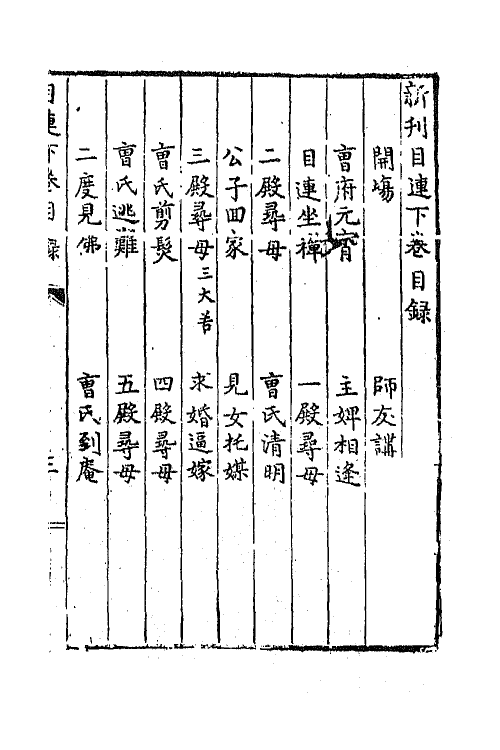 新刊目連下卷目録
開場 師友講
曹府元宵 主婢相逢
目連坐禪 一殿尋母
二殿尋母 曹氏清明
公子回家 見女托媒
三殿尋母三大苦 求婚逼嫁
曹氏剪髮 四殿尋母
曹氏逃難 五殿尋母
二度見佛 曹氏到庵
目連下卷目録